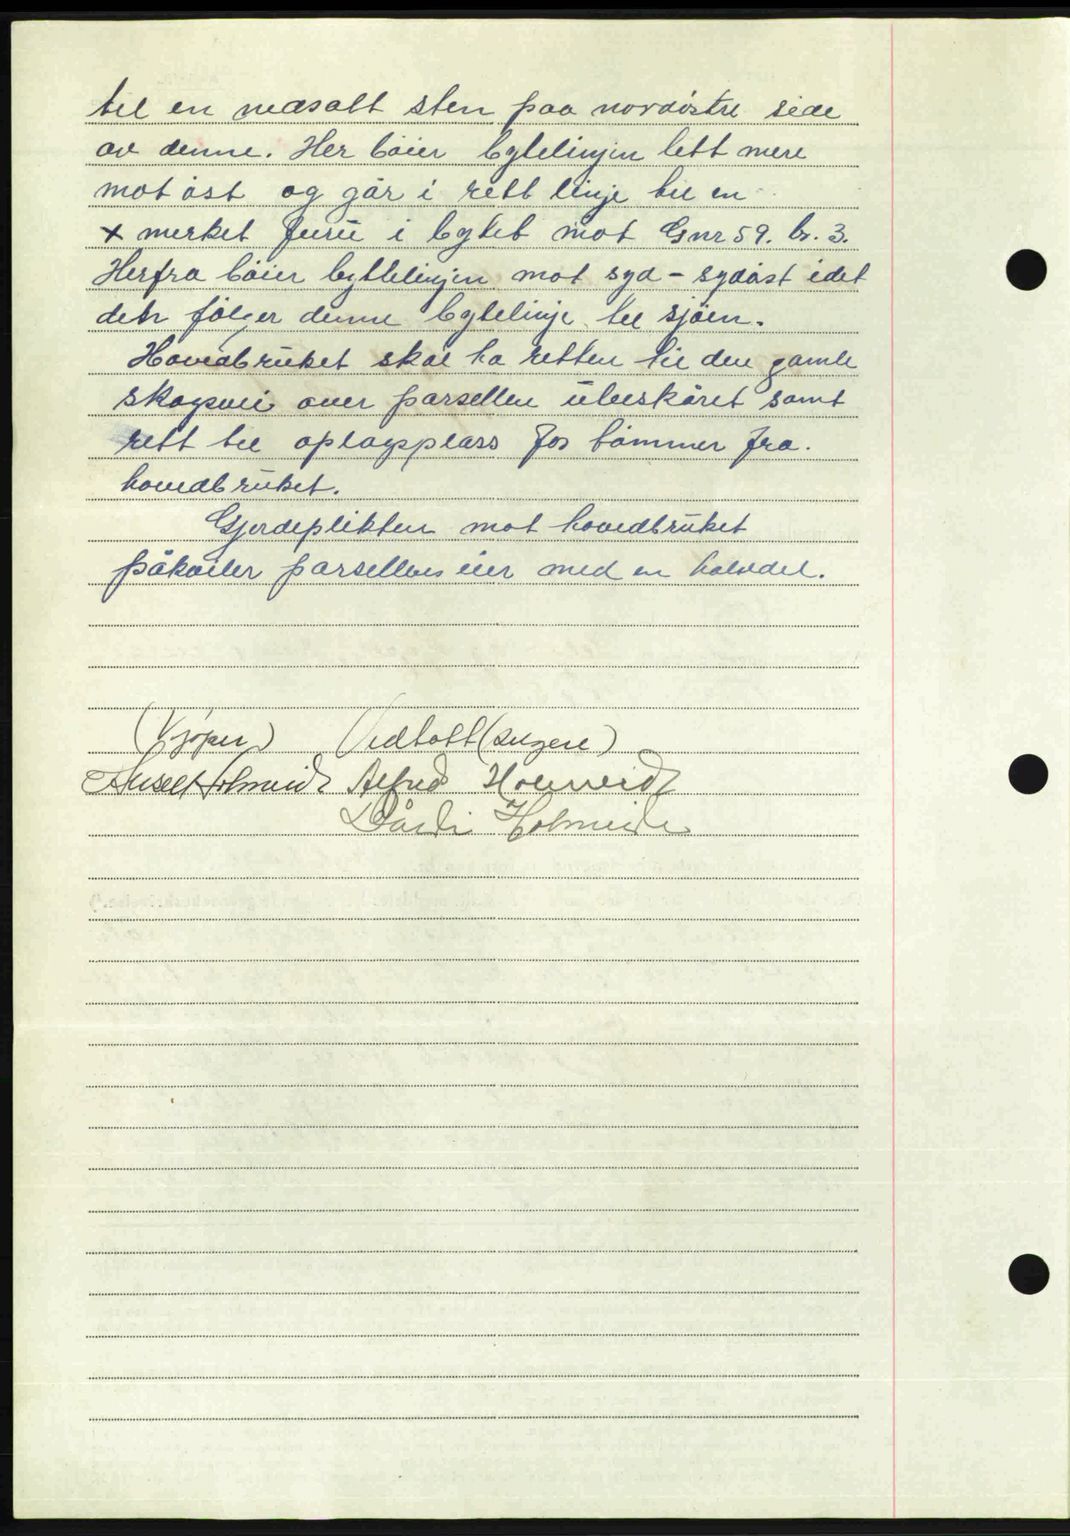 til en nedsatt sten paa nordöstre side
av denne. Her böier bytelinjen lett mere
mot öst og går i rett linje til en
x merket furu i bytet mot Gnr 59. br. 3.
Herfra böier byttelinjen mot syd - sydöst idet
den fölger denne bytelinje til sjöen.
Hovedbruket skal ha retten til den gamle
skogsvei over parsellen ubeskåret samt
rett til oplagsplass for tömmer fra
hovedbruket.
Gjerdeplikten mot hovedbruket
påhviler parsellens eier med en halvdel.
(Kjöper) Vedtatt (selgere)
Holmeide Alfred Holmeide
Holmeide